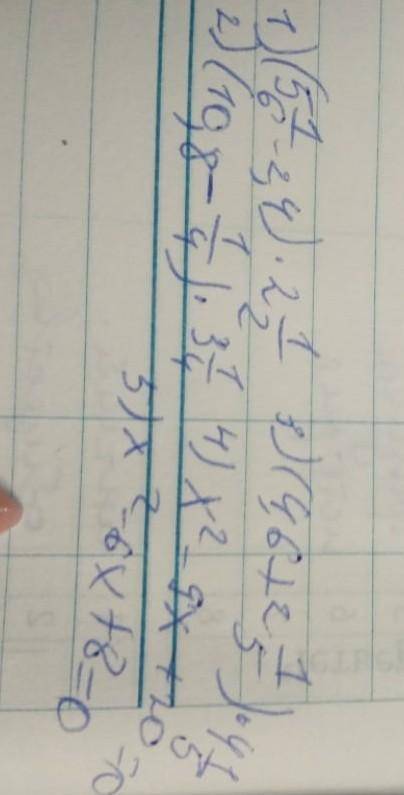 1) (5 1/6 - 2,4) · 2 1/2 3) (4,6 + 2 1/5) · 4 1/5
2) (10,8 - 1/4) · 3 1/4 4) x² - 9x + 20 = 0
5) x² - 6x + 8 = 0